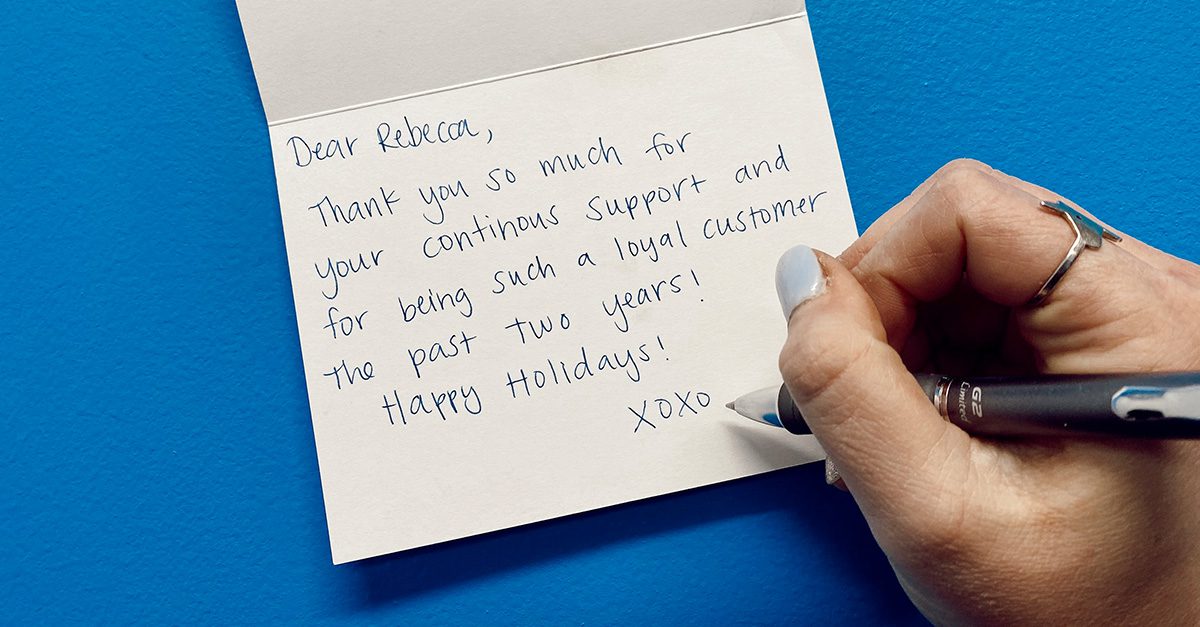 Dear Rebecca,
Thank you so much for
your continous support and
for being such a loyal customer
the past two years!
Happy Holidays!
XOXO
G2
Limited